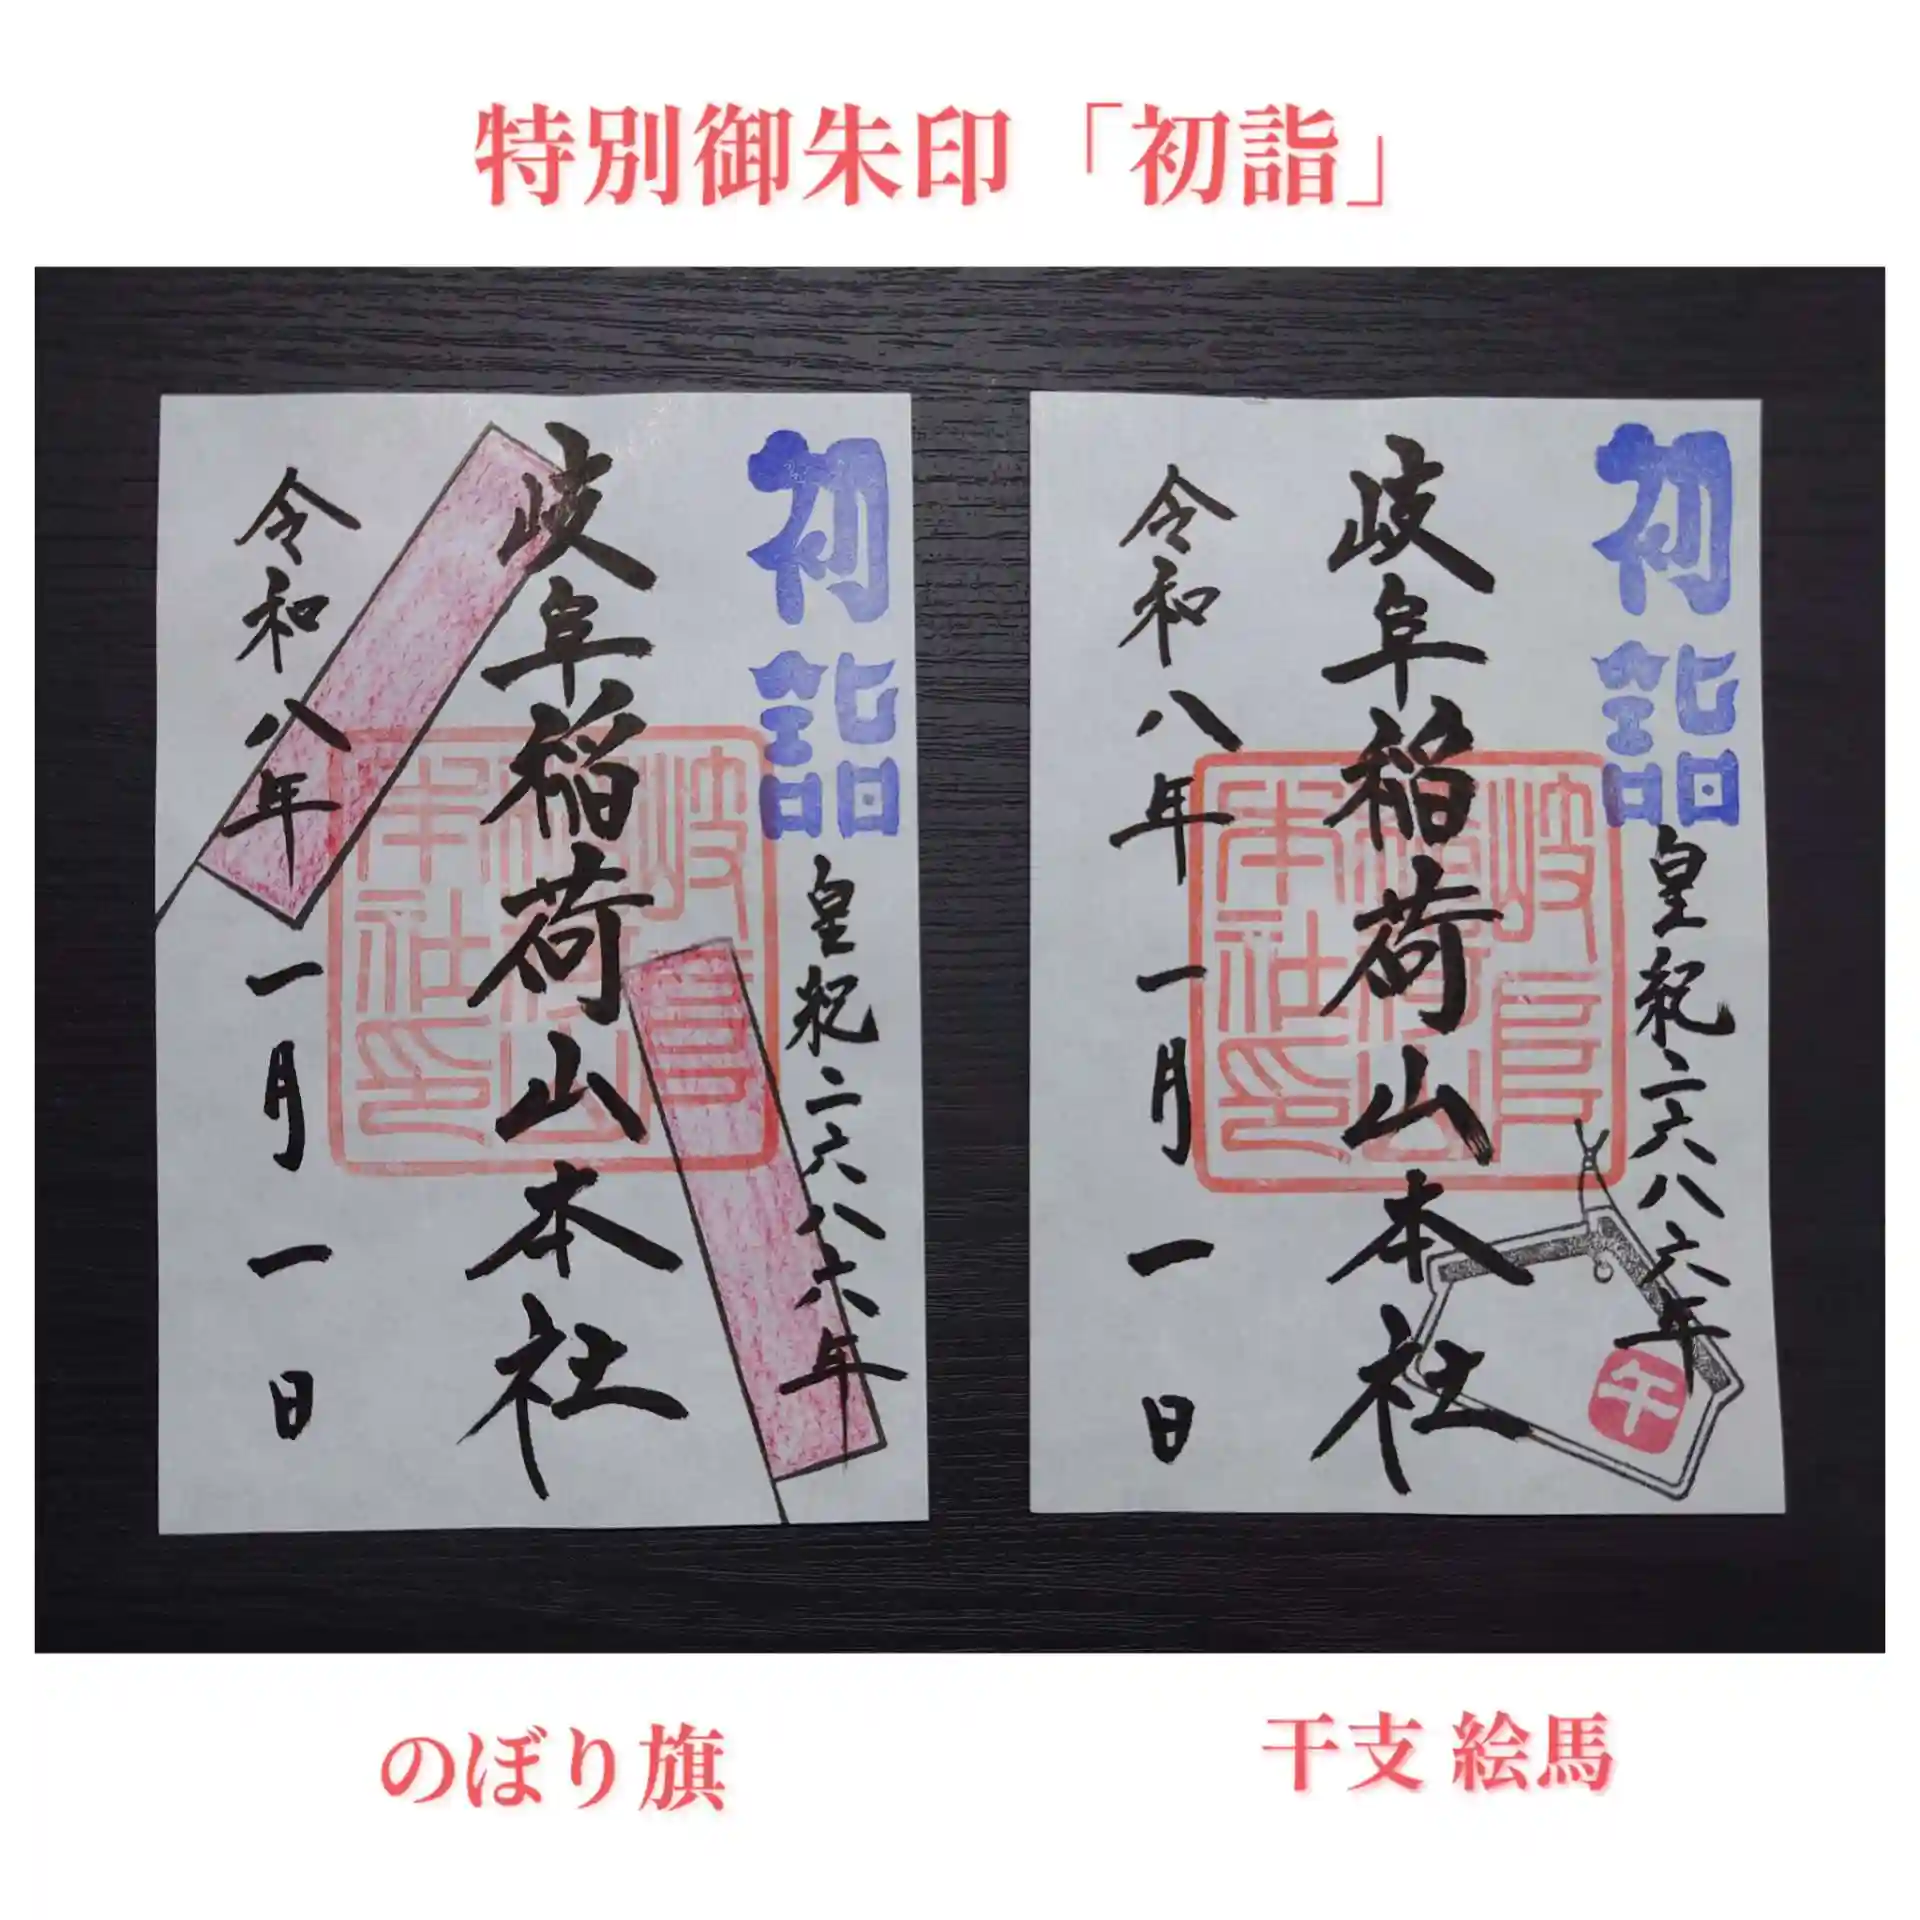 特別御朱印「初詣」
初詣
皇紀二六八六年
岐阜稲荷山本社
岐阜稲荷山本社印
令和八年一月一日
初詣
皇紀二六八六年
岐阜稲荷山本社
岐阜稲荷山本社印
令和八年一月一日
午
のぼり旗
干支 絵馬